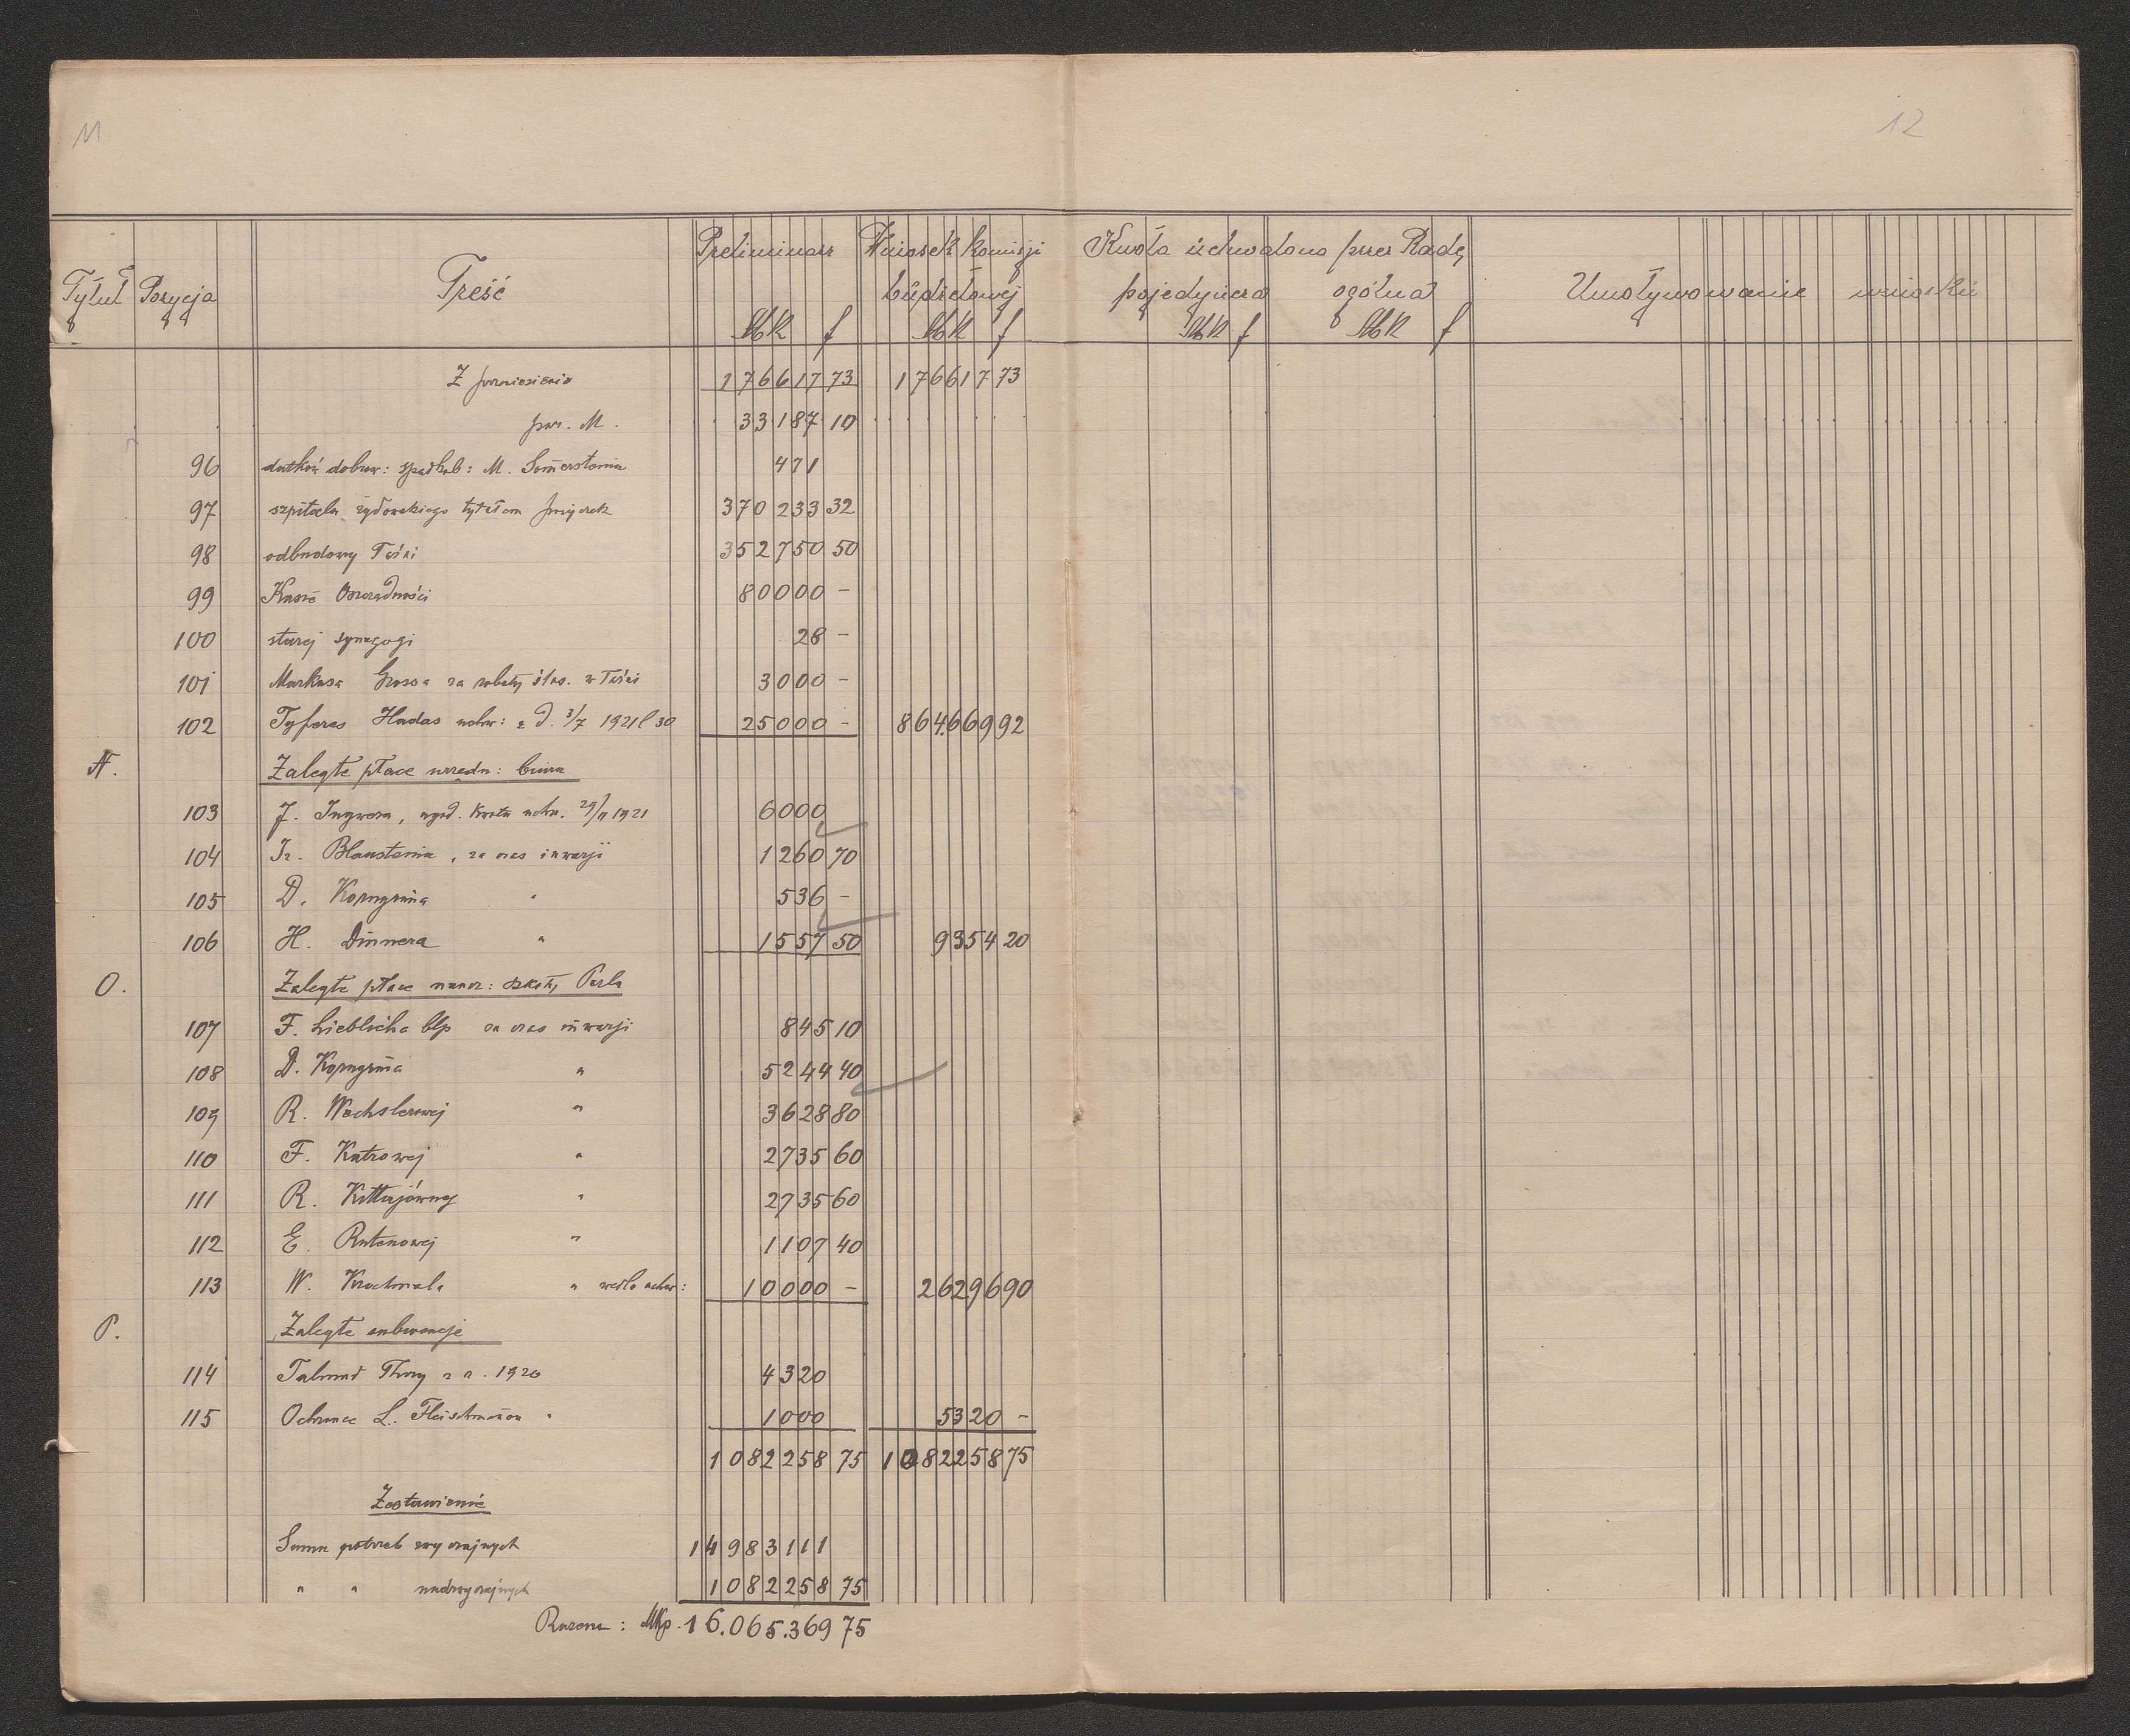 11
12
Tytuł Pozycja Treść Preliminarz Wniosek komisji budżetowej Kwota uchwalona przez Radę Umotywowanie wniosku
pojedyncza ogólna
Mk f Mk f Mk f Mk f
Z przeniesienia 176617 73 176617 73
poz. M. 33187 10
96 datków dobrow: spadkob: M. Somersteina 471
97 szpitala żydowskiego tytułem pożyczek 370233 32
98 odbudowy Taźni 352750 50
99 Kasie Oszczędności 80000 -
100 starej synagogi 28 -
101 Markusa Grossa za roboty ślus. w Taźni 3000 -
102 Tyferes Hadas uchw: z d. 3/7 1921 l 30 25000 - 864.669 92
N. Zaległe płace urzędn: biura
103 J. Ingwera, wgod. kwota uchw. 29/11 1921 6000
104 Iz. Blausteina, za czas inwazji 1260 70
105 D. Korngrüna " 536 -
106 H. Dinnera " 1557 50 9354 20
O. Zaległe płace naucz: szkoły Perla
107 F. Lieblicha blp za czas inwazji 845 10
108 D. Korngrüna " 5244 40
109 R. Wechslerowej " 3628 80
110 F. Katzowej " 2735 60
111 R. Kittajówny " 2735 60
112 E. Rutenowej " 1107 40
113 W. Krochmala " wedle uchw: 10000 - 26296 90
P. Zaległe subwencje
114 Talmud Thory z r. 1920 4320
115 Ochronce L. Fleischmanna " 1000 5320 -
1082258 75 1082258 75
Zestawienie
Suma potrzeb zwyczajnych 14983111
" " nadzwyczajnych 1082258 75
Razem: Mkp. 16.065.369 75